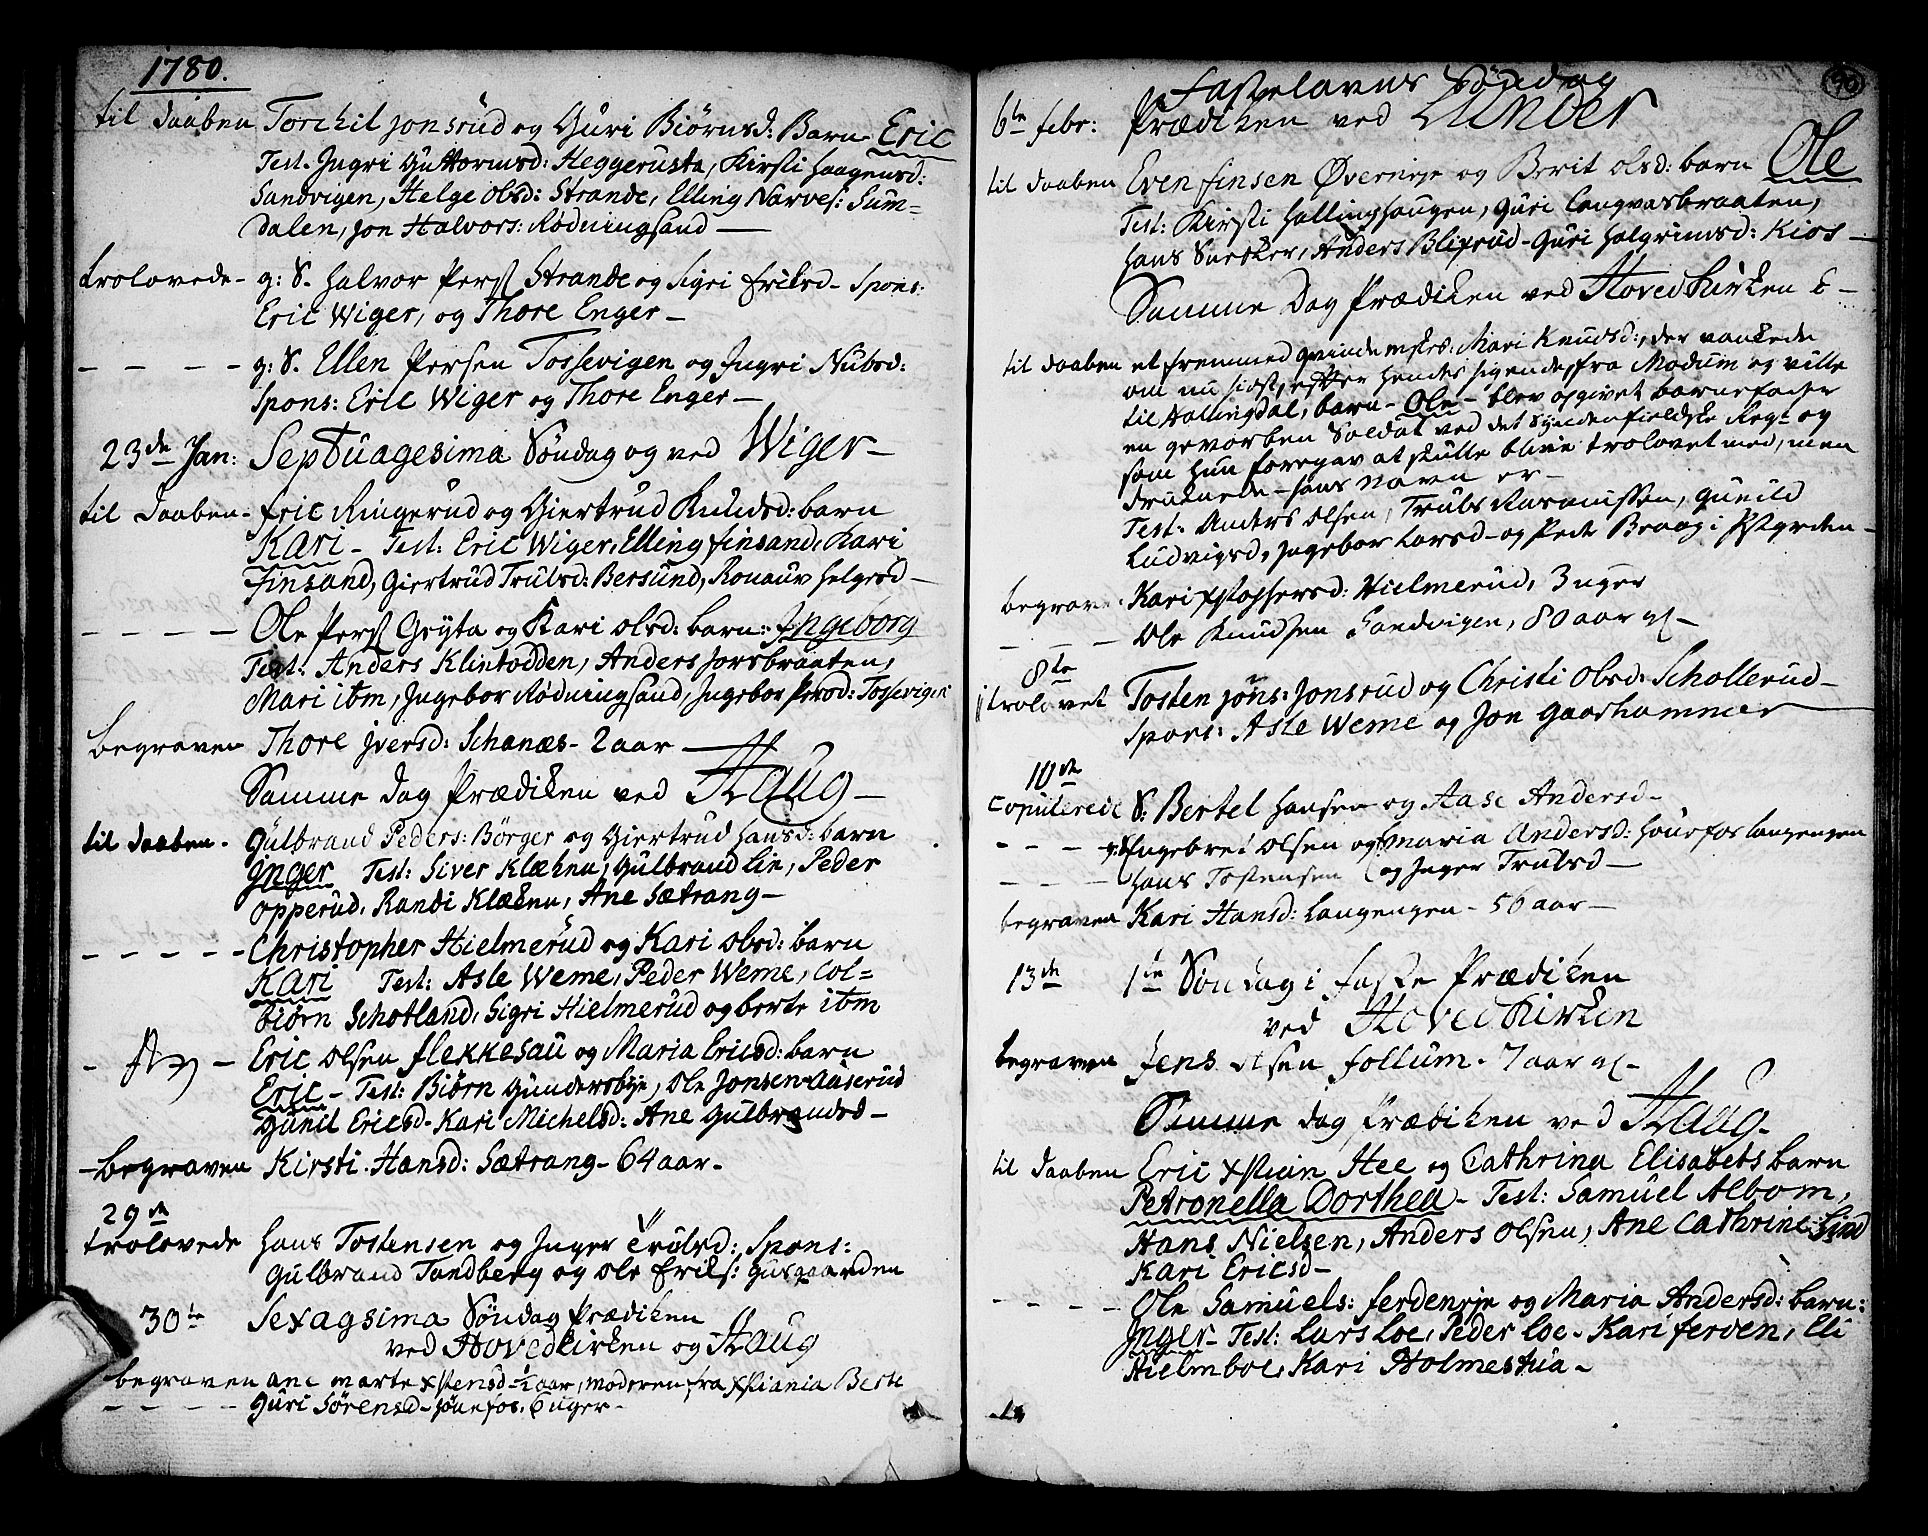 1780.
til Daaben Torchil Jonsrud og Guri Biørnsd: Barn Eric
Test. Ingri Guttormsd: Heggerusta, Kirsti Haagensd:
Sandvigen, Helge Olsd: Strande, Elling Narves: Sum=
dalen, Jon Halvors: Rødningsand
trolovede - g: S. Halvor Pers Strande og Sigri Eriksd - Spons:
Eric Wiger, og Thore Enger -
- - - - g: S. Ellen Persen Tossevigen og Ingri Nubsd:
Spons: Eric Wiger og Thore Enger -
23de Jan: Septuagesima Søndag og ved Wiger -
til Daaben - Eric Ringerud og Giertrud Knudsd: barn
Kari - Test: Eric Wiger, Elling Finsand, Kari
Finsand, Giertrud Trulsd: Bersund, Ronauv Helgesd -
- - - - Ole Pers Gryta og Kari Olsd: barn: Ingeborg
Test: Anders Klintodden, Anders Jorsbraaten,
Mari ibm, Ingebor Rødningsand, Ingebor Persd: Tossevigen
begraven Thore Iversd: Schanæs - 2 aar -
Samme Dag Prædiken ved Haug -
til Daaben - Gulbrand Peders: Börger og Giertrud Hansd: barn
Inger Test: Siver Klækn, Gulbrand Lie, Peder
Opperud, Randi Klækn, Ane Sætrang -
- - - - - Christopher Hielmerud og Kari Olsd: barn
Kari Test: Asle Weme, Peder Weme, Col=
biørn Schotland, Sigri Hielmerud og berte ibm
- Eric Olsen Flekkesau og Maria Ericsd: barn
Eric - Test: Biørn Gundersbye, Ole Jonsen Aaserud
Gunil Ericsd - Kari Michelsd: Ane Gulbrandsd -
- begraven Kirsti Hansd: Sætrang - 64 aar -
29de
trolovede Hans Tostensen og Inger Trulsd: Spons:
Gulbrand Tandberg og Ole Eriks: Gusgaarden
30te Sexagsima Søndag Prædiken
ved Hovedkirken og Haug
begraven ane marte xstensd - 1/2 aar, moderen fra xstiania Berte
- - - - Guri Sörensd - Hönefos, 6 uger -
90
Fastelavns Söndag
6te Febr: Prædiken ved Lunder
til Daaben Even Finsen Øverneje og Berit Olsd: barn Ole
Test: Kirsti Hallingshaugen, Guri Langvasbraaten,
Hans Snecker, Anders Blixrud - Guri Halgrimsd: Kios -
Samme Dag Prædiken ved Hovedkirken
til Daaben et fremmed qvindemskes: Mari Knudsd:, der vankede
om nu sidst, efter hendes sigende, fra Modum og vilde
til Hallingdal, barn - Ole - blev opgivet barnefader
en gevorben Soldat ved det Syndenfieldske Reg: og
som hun foregav at skulle blive trolovet med, men
druknede - hans navn er -
Test: Anders Olsen, Truls Rasmussen, Gunild
Ludvigsd, Ingebor Larsd - og Pede Braag i Pstgrden -
begraven Kari xstophersd: Hielmerud, 3 uger
- - - Ole Knudsen Sandvigen, 80 aar gl -
8te
trolovet Tosten Jöns: Jonsrud og Christi Olsd: Schollerud -
Spons: Asle Weme og Jon Gaarhammer
10de
Copulerede S: Bertel Hansen og Aase Andersd -
- - - Engebret Olsen og Maria Andersd: Hönefos Langengen
- - - Hans Tostensen og Inger Trulsd -
begraven Kari Hansd: Langengen - 56 aar -
13de 1te Søndag i Faste Prædiken
ved Hovedkirken
begraven Jens Olsen Follum - 7 aar gl -
Samme dag Prædiken ved Haug -
til Daaben Eric xstian Hee og Cathrina Elisabets barn
Petronella Dorthea - Test: Samuel Albom,
Hans Nielsen, Anders Olsen, Ane Cathrine Lind
Kari Ericsd -
- - - - Ole Samuels: Ferdeneje og Maria Andersd: barn:
Inger - Test: Lars Loe, Peder Loe - Kari Ferden, Eli
Hielmboe, Kari Holmestua -